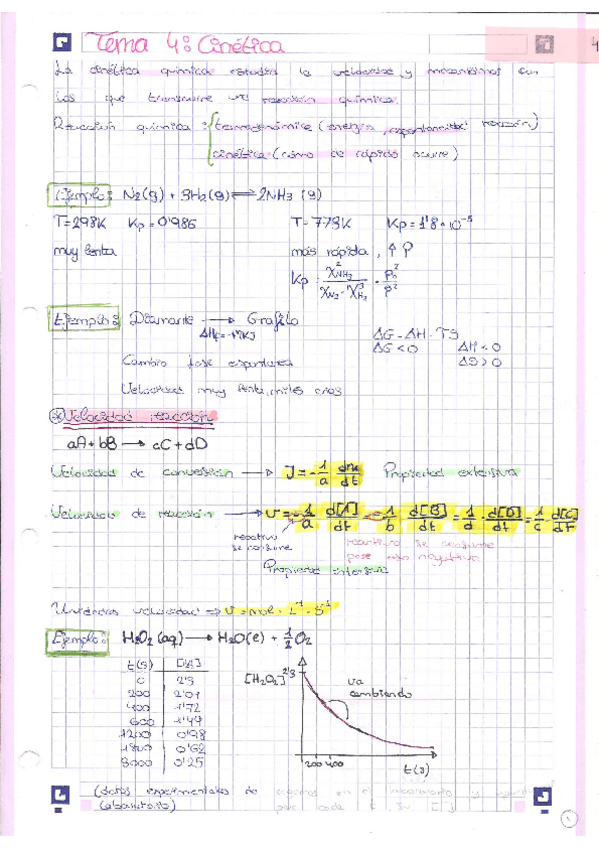 Tema 4: Cinética
4
La cinética química estudia la velocidad y mecanismos con
los que transcurre una reacción química.
Reacción química: termodinámica (energía, espontaneidad reacción)
cinética (cómo de rápido ocurre)
Ejemplo: N₂(g) + 3H₂(g) ⇌ 2NH₃ (g)
T=298K Kp=0'986 T=773K Kp=1'8·10⁻⁵
muy lenta más rápida, ↑P
Kp = χ²NH₃ / χN₂·χ³H₂ · P₀² / P²
Ejemplo: Diamante → Grafito
ΔG = ΔH - TS
ΔG<0 ΔH<0
Cambio fase espontánea ΔS>0
Velocidad muy lenta, miles años
Velocidad reacción
aA+bB → cC+dD
Velocidad de conversión → J = - 1/a dna/dt Propiedad extensiva
Velocidad de reacción → v = - 1/a d[A]/dt = - 1/b d[B]/dt = 1/d · d[D]/dt = 1/c · d[C]/dt
reactivo se consume
reactivo se consume
pone signo negativo
Propiedad intensiva
Unidades velocidad ⇒ v = mol · L⁻¹ · s⁻¹
Ejemplo: H₂O₂ (aq) → H₂O(l) + ½O₂
t(s) [A]
0 2'3
200 2'01
400 1'72
600 1'49
1200 0'98
1800 0'62
3000 0'25
[H₂O₂] 2'3
va
cambiando
200 400
t(s)
(datos experimentales de
laboratorio)
en el laboratorio y